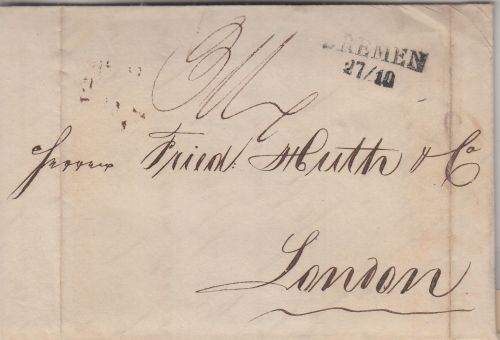 BREMEN
27/10
Herren Fried. Huth & Co
London